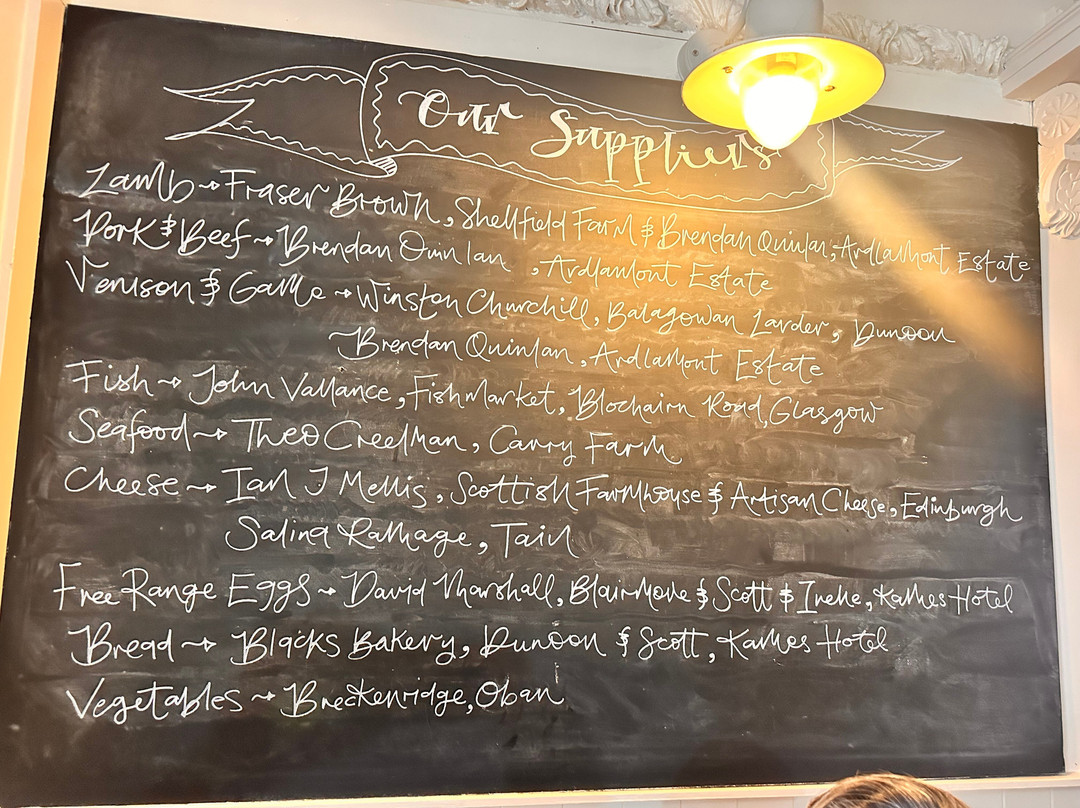 Our Suppliers
Lamb → Fraser Brown, Shellfield Farm & Brendan Quinlan, Ardlamont Estate
Pork & Beef → Brendan Quinlan, Ardlamont Estate
Venison & Game → Winston Churchill, Balagowan Larder, Dunoon
Brendan Quinlan, Ardlamont Estate
Fish → John Vallance, Fishmarket, Blochairn Road, Glasgow
Seafood → Theo Creelman, Carry Farm
Cheese → Ian J Mellis, Scottish Farmhouse & Artisan Cheese, Edinburgh
Salina Ramage, Tain
Free Range Eggs → David Marshall, Blairmore & Scott & Ineke, Kames Hotel
Bread → Blacks Bakery, Dunoon & Scott, Kames Hotel
Vegetables → Breckenridge, Oban